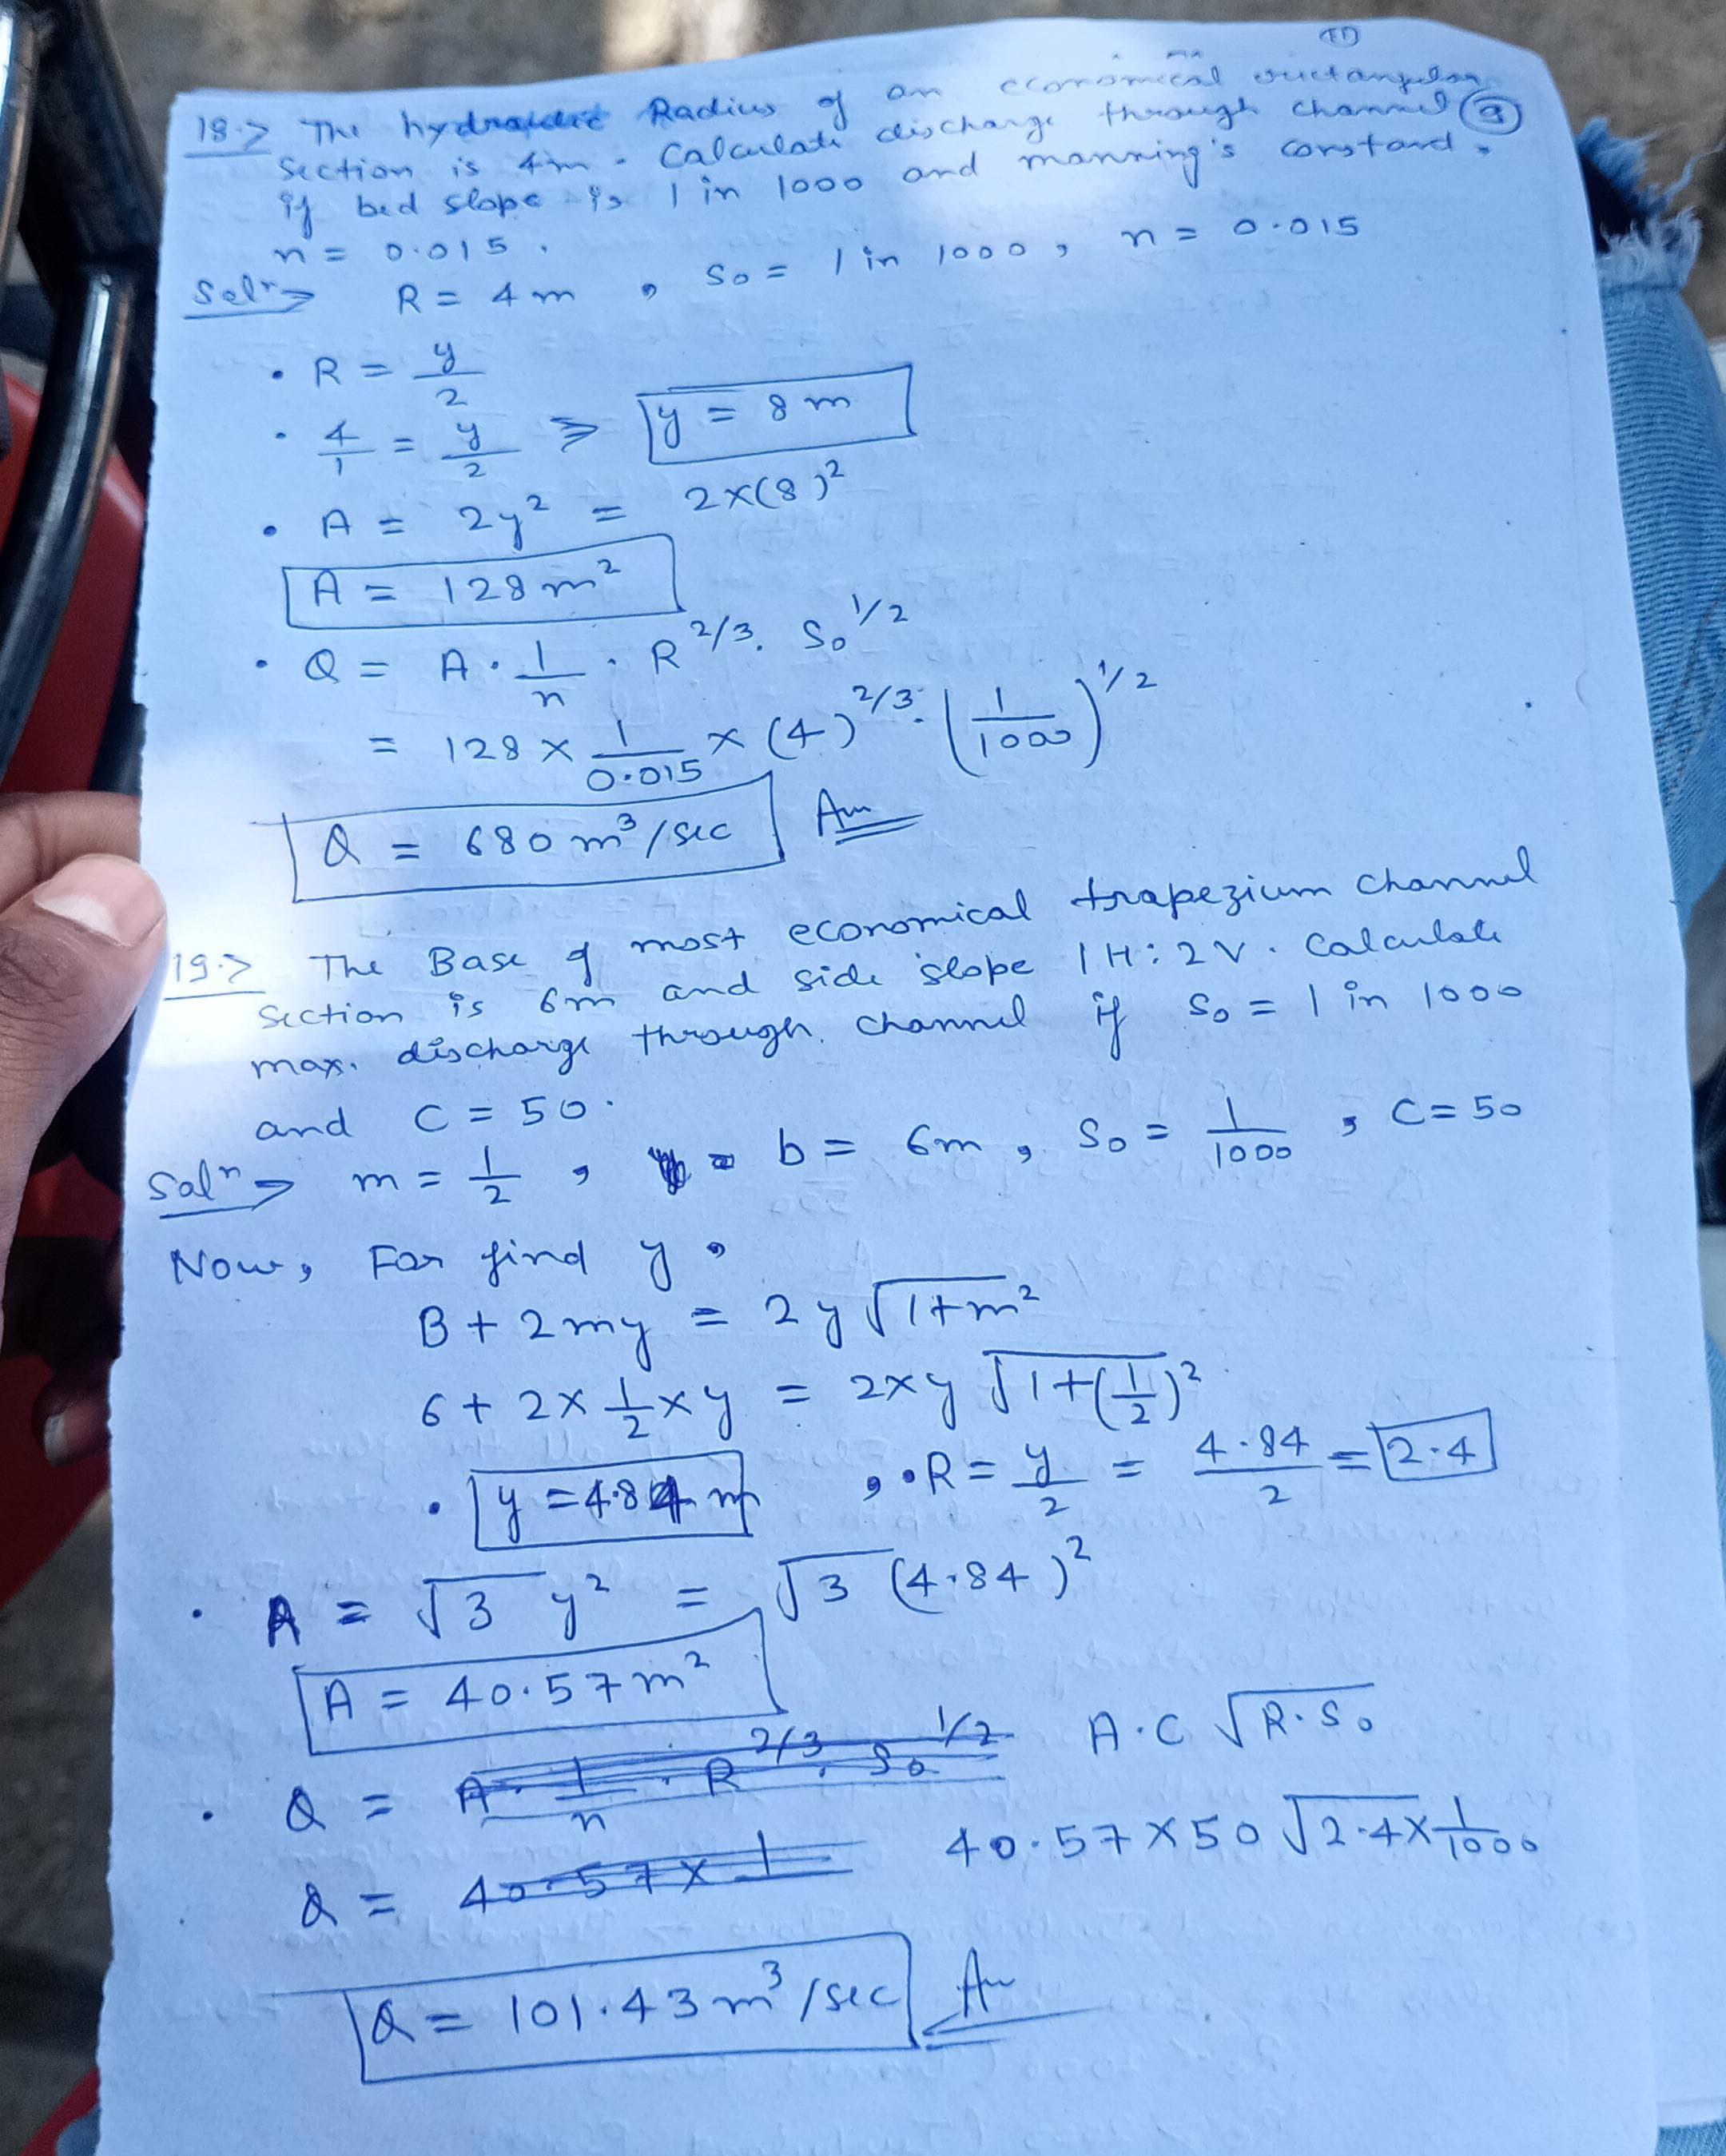 18.> The hydraulic Radius of an economical rectangular
section is 4m. Calculate discharge through channel
if bed slope is 1 in 1000 and manning's constand,
n = 0.015.
9
Solⁿ> R = 4m , S₀ = 1 in 1000 , n = 0.015
• R = y/2
• 4/1 = y/2 ⇒ y = 8m
• A = 2y² = 2×(8)²
A = 128 m²
• Q = A · 1/n · R^2/3 . S₀^1/2
= 128 × 1/0.015 × (4)^2/3 . (1/1000)^1/2
Q = 680 m³/sec Ans
19.> The Base of most economical trapezium channel
section is 6m and side slope 1H:2V. Calculate
max. discharge through channel if S₀ = 1 in 1000
and C = 50.
Solⁿ> m = 1/2 , b = 6m , S₀ = 1/1000 , C = 50
Now, For find y,
B + 2my = 2y√1+m²
6 + 2×1/2×y = 2×y √1+(1/2)²
• y = 4.84 m , • R = y/2 = 4.84/2 = 2.4
• A = √3 y² = √3 (4.84)²
A = 40.57 m²
• Q = A · 1/n · R^2/3 . S₀^1/2 A·C √R·S₀
Q = 40.57 × 1 40.57×50 √2.4×1/1000
Q = 101.43 m³/sec Ans